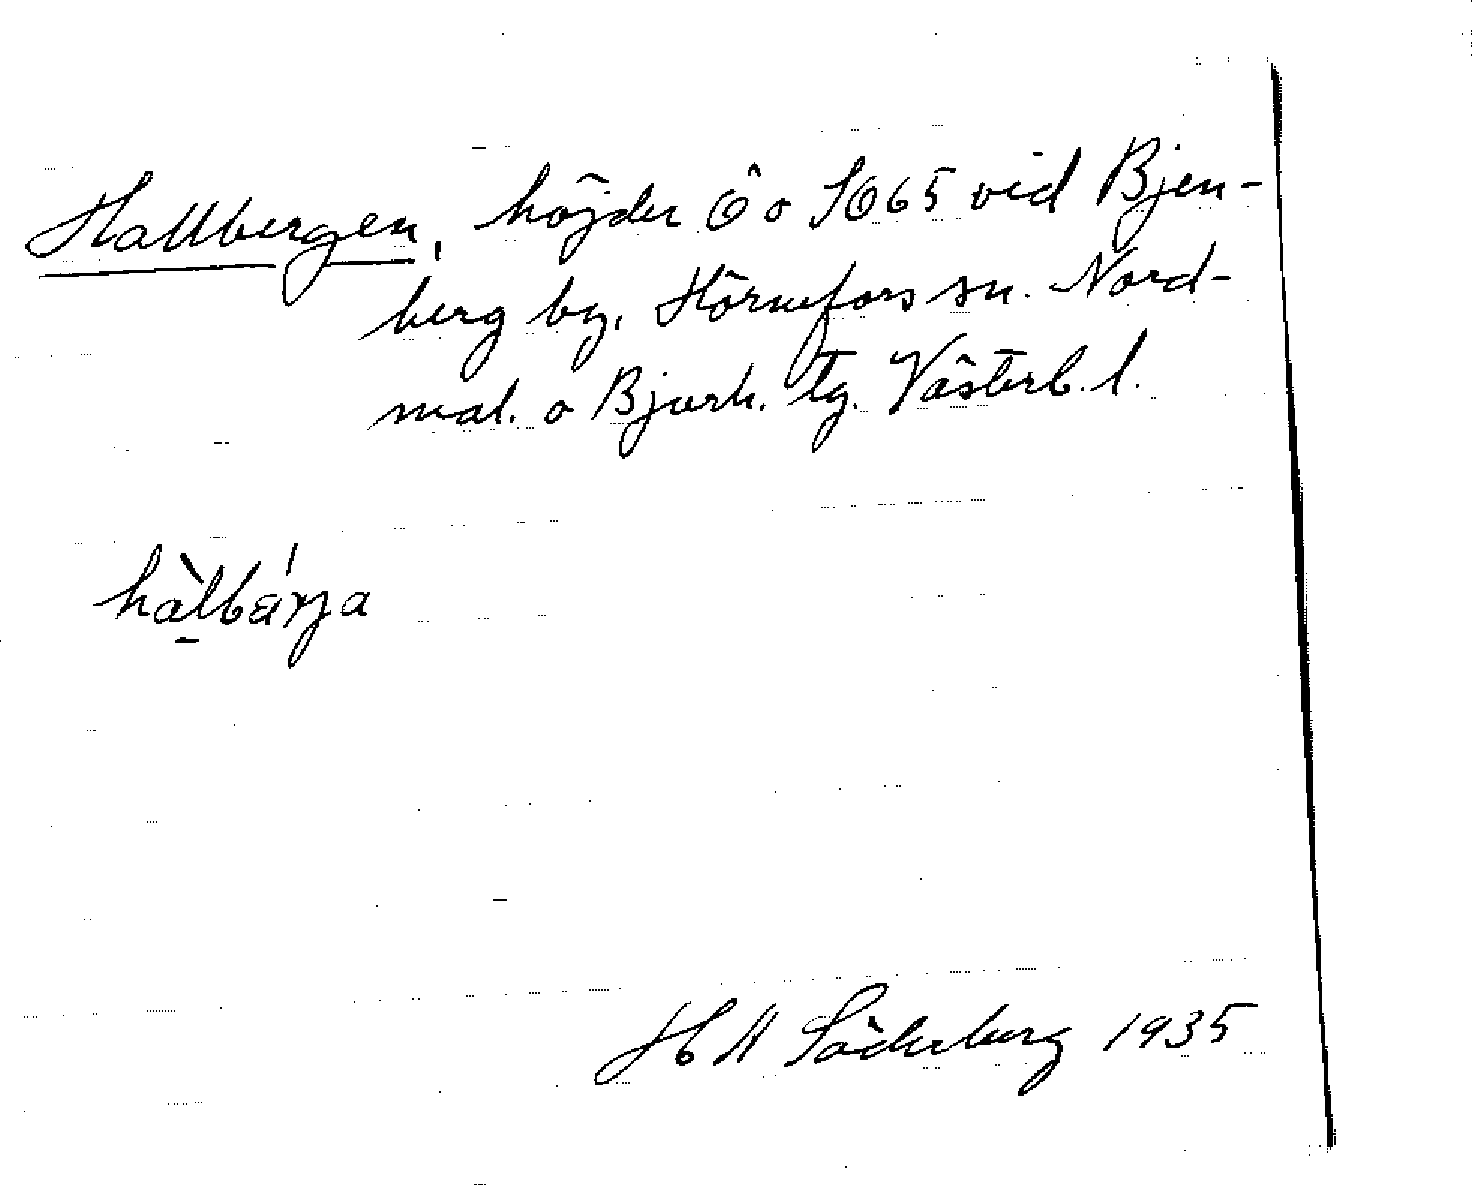 Hallbergen, höjder Ö o SÖ 65 vid Bjen-
berg by, Hörnefors sn. Nord-
mal. o Bjurh. tg. Västerb. l.
hàlbárja
H Söderberg 1935